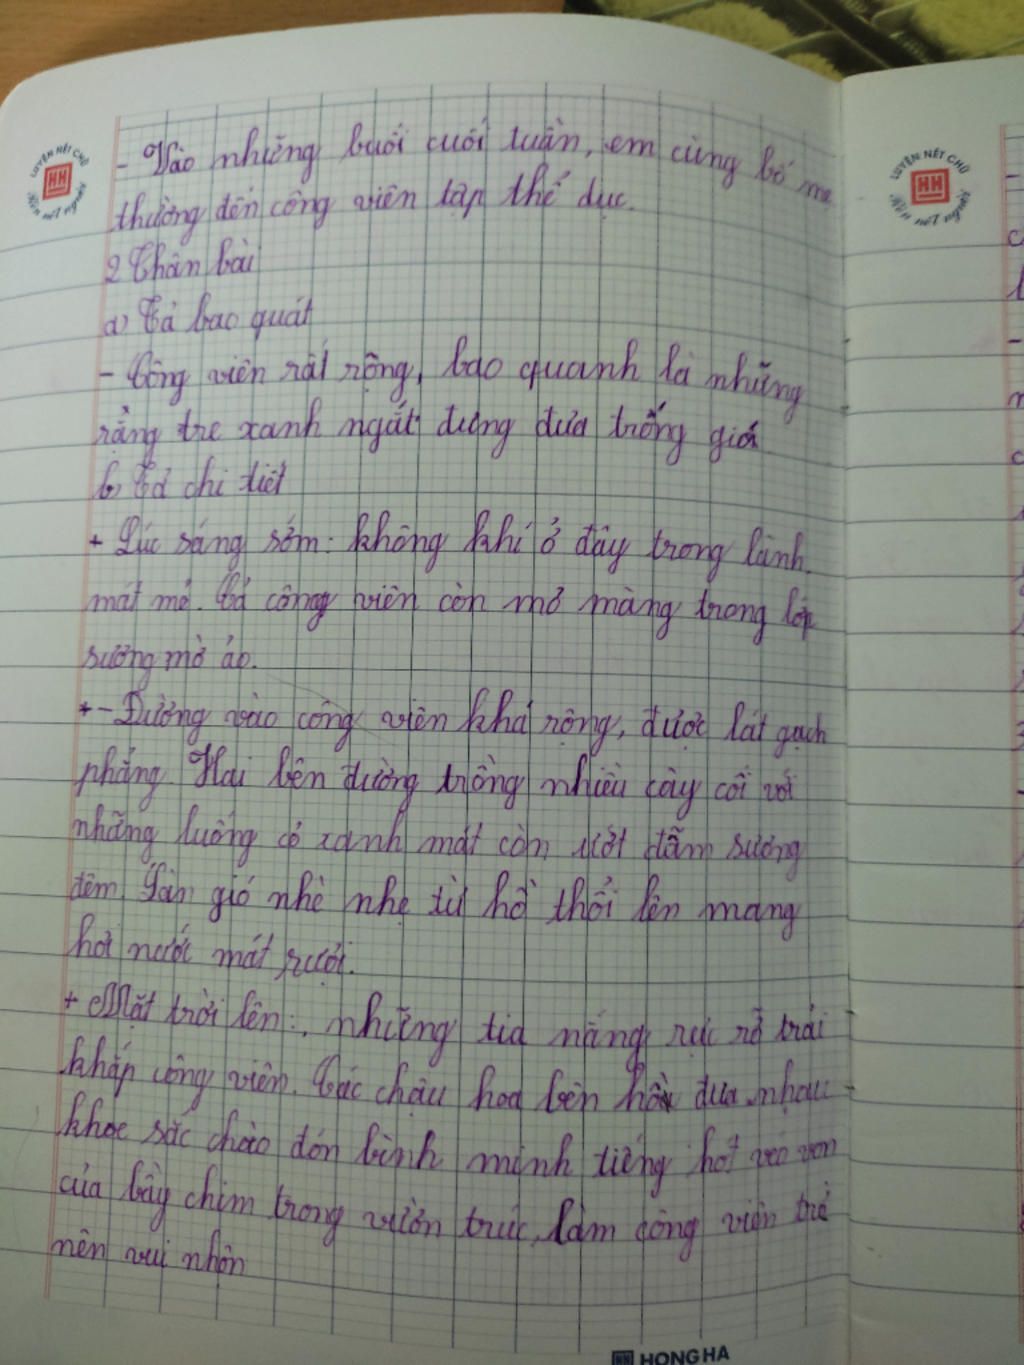 LUYỆN NÉT CHỮ
Rèn nét người
LUYỆN NÉT CHỮ
Rèn nét người
- Vào những buổi cuối tuần, em cùng bố mẹ
thường đến công viên tập thể dục.
2 Thân bài
a) Tả bao quát
- Công viên rất rộng, bao quanh là những
rặng tre xanh ngắt đung đưa trong gió
b) Tả chi tiết
+ Lúc sáng sớm: không khí ở đây trong lành,
mát mẻ. Cả công viên còn mơ màng trong lớp
sương mờ ảo.
+ - Đường vào công viên khá rộng, được lát gạch
phẳng. Hai bên đường trồng nhiều cây cối với
những luống cỏ xanh mát còn ướt đẫm sương
đêm. Làn gió nhè nhẹ từ hồ thổi lên mang
hơi nước mát rượi.
+ Mặt trời lên:, những tia nắng rực rỡ trải
khắp công viên. Các chậu hoa bên hồ đua nhau
khoe sắc chào đón bình minh tiếng hót véo von
của bầy chim trong vườn trúc, làm công viên trở
nên vui nhộn
HH HONG HA